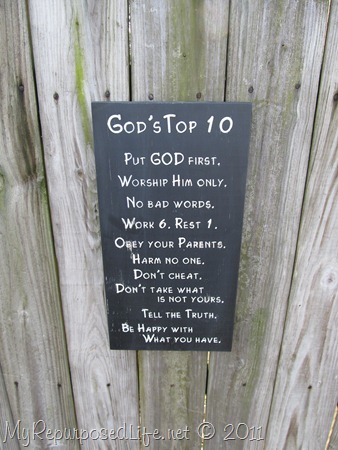 God's Top 10
Put GOD first.
Worship Him only.
No bad words.
Work 6. Rest 1.
Obey your Parents.
Harm no one.
Don't cheat.
Don't take what
is not yours.
Tell the Truth.
Be Happy with
What you have.
MyRepurposedLife.net © 2011